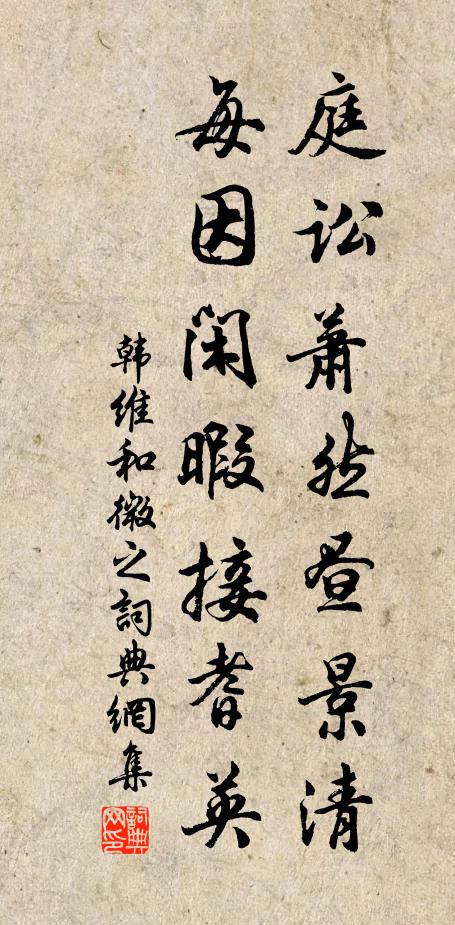 庭讼萧然昼景清
每因闲暇接耆英
韩维和微之词典網集
詞典網印